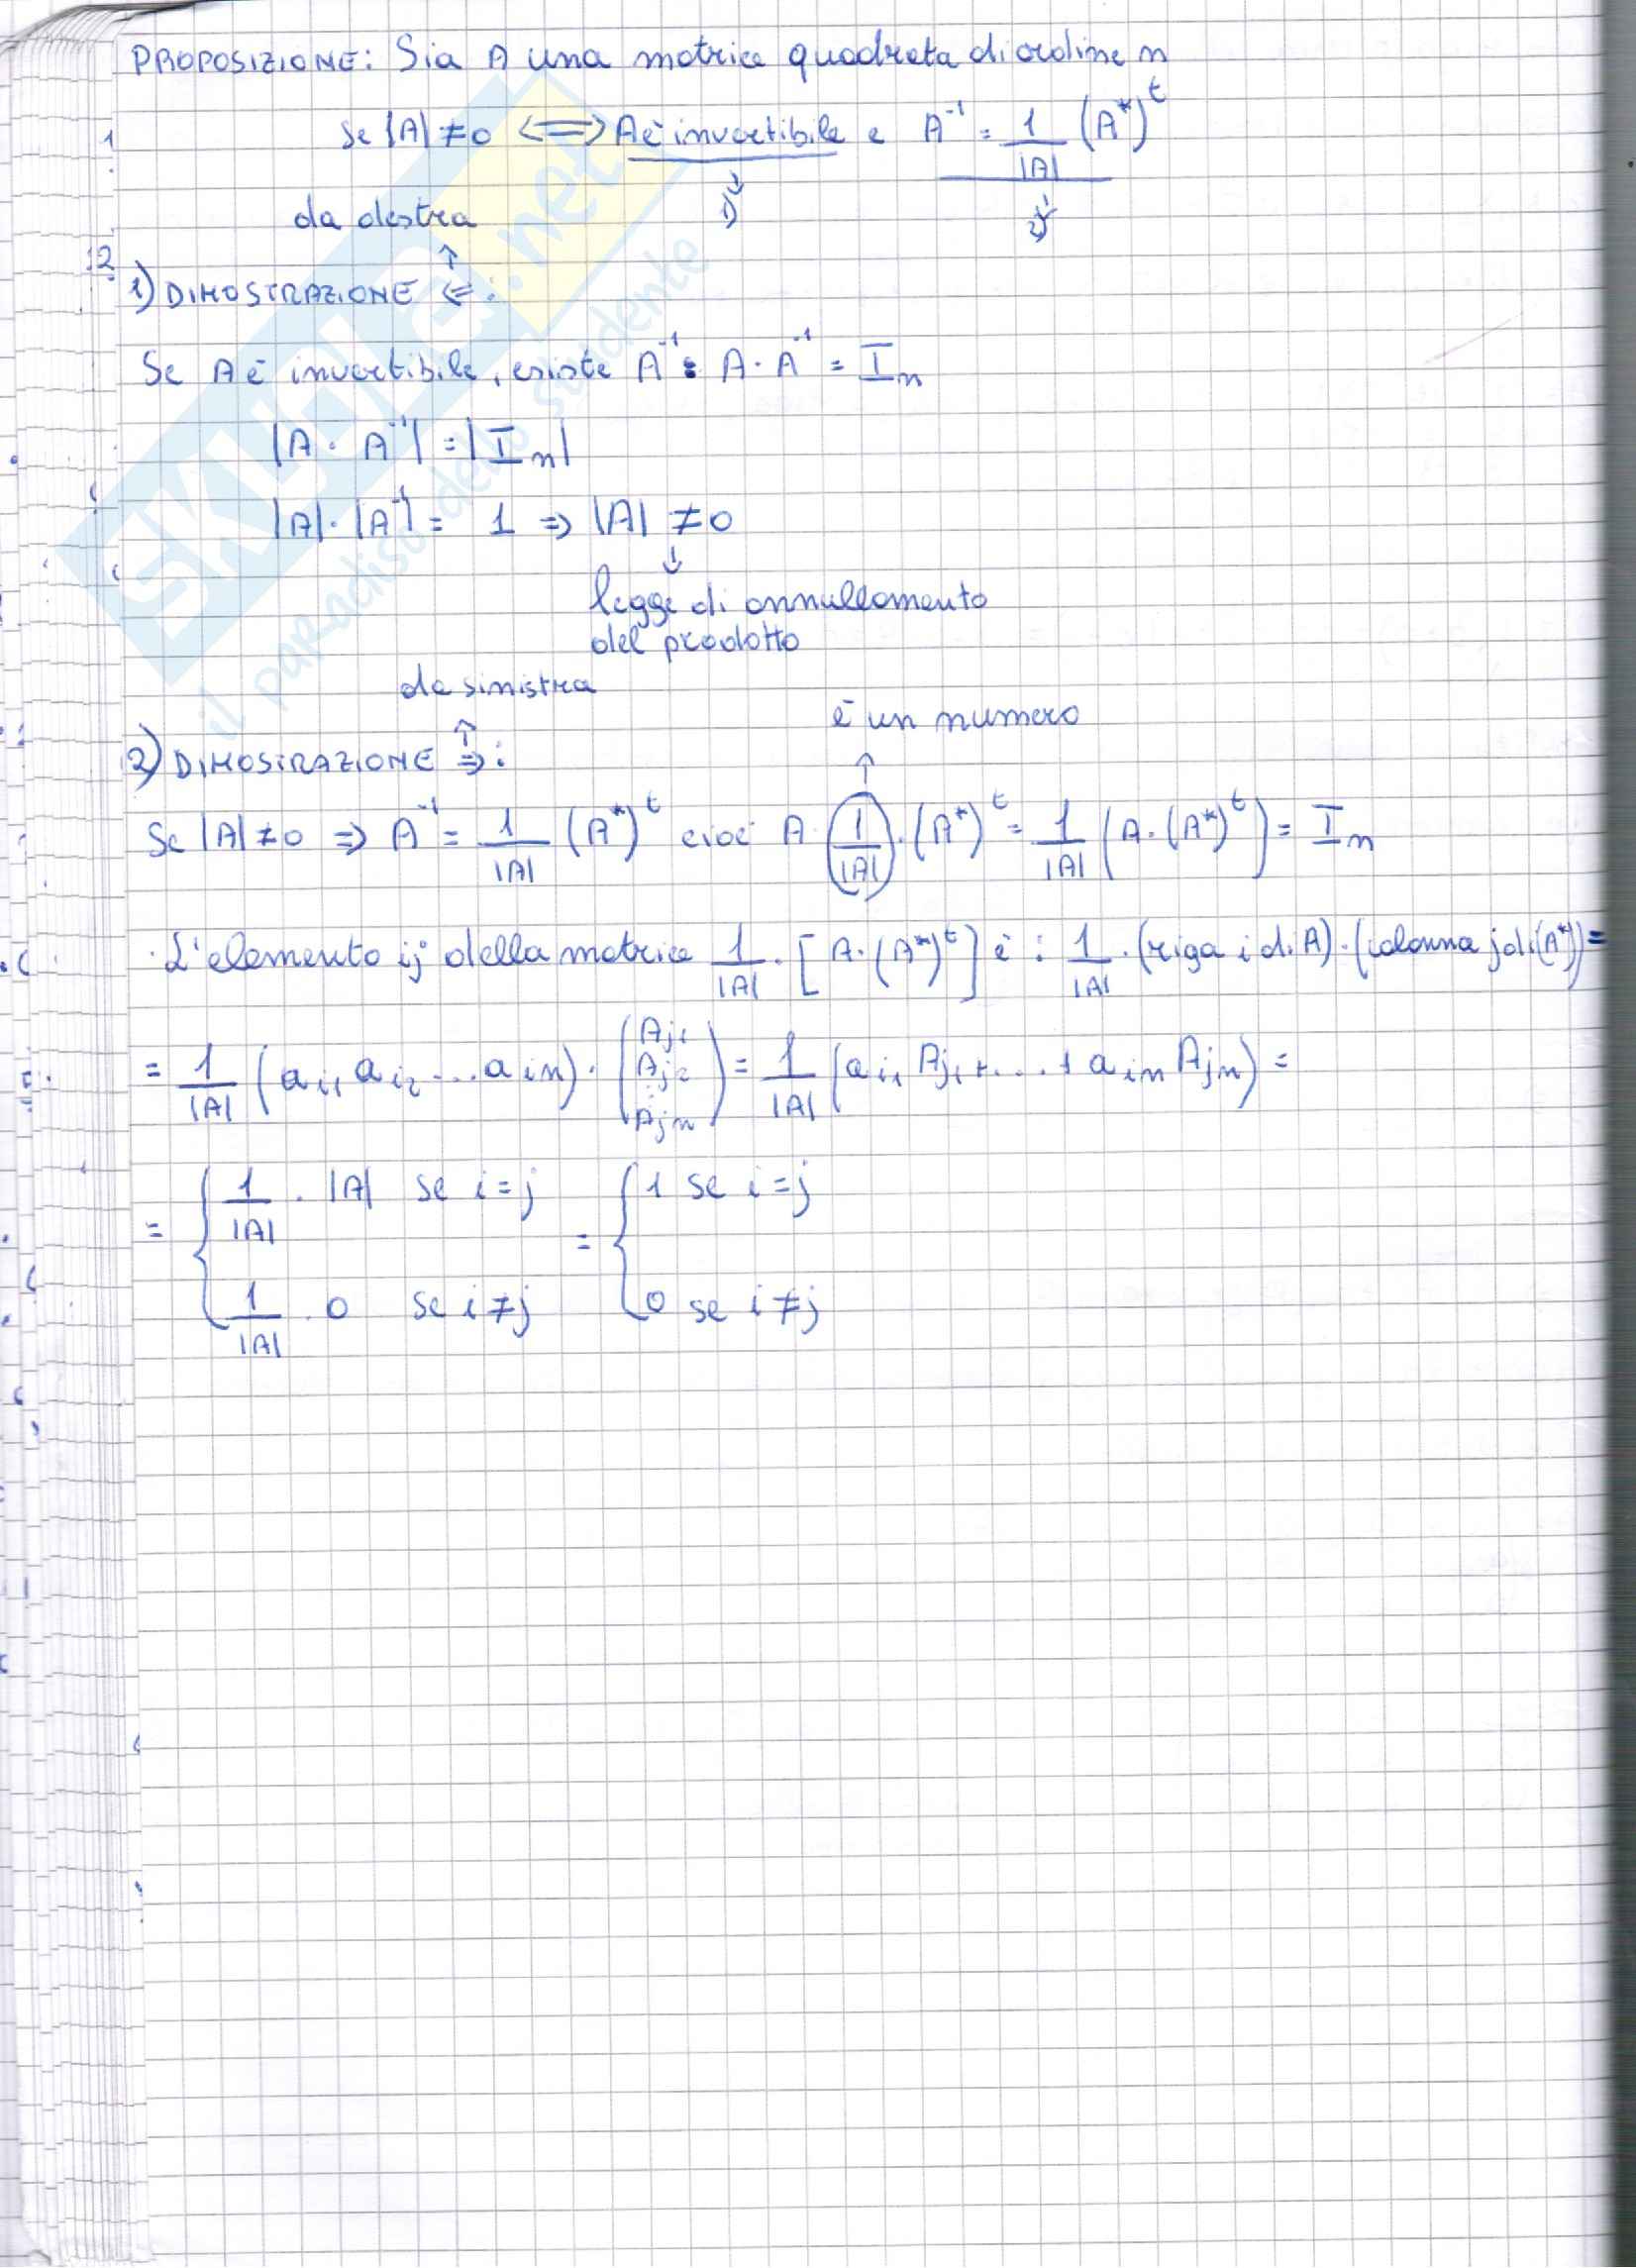 PROPOSIZIONE: Sia A una matrice quadrata di ordine n
se |A| ≠ 0 <=> A è invertibile e A⁻¹ = 1/|A| (A*)ᵗ
1) 2)
da destra
↑
1) DIMOSTRAZIONE <= :
Se A è invertibile, esiste A⁻¹ : A · A⁻¹ = Iₙ
|A · A⁻¹| = |Iₙ|
|A| · |A⁻¹| = 1 => |A| ≠ 0
↓
legge di annullamento
del prodotto
da sinistra
è un numero
↑ ↑
2) DIMOSTRAZIONE => :
Se |A| ≠ 0 => A⁻¹ = 1/|A| (A*)ᵗ cioè A · 1/|A| · (A*)ᵗ = 1/|A| (A · (A*)ᵗ) = Iₙ
· L'elemento ij della matrice 1/|A| · [A · (A*)ᵗ] è : 1/|A| · (riga i di A) · (colonna j di (A*)) =
= 1/|A| (aᵢ₁ aᵢ₂ ... aᵢₙ) · (Aⱼ₁ Aⱼ₂ ⋮ Aⱼₙ) = 1/|A| (aᵢ₁ Aⱼ₁ + ... + aᵢₙ Aⱼₙ) =
= { 1/|A| · |A| se i = j = { 1 se i = j
1/|A| · 0 se i ≠ j 0 se i ≠ j
SKUOLA.net
il paradiso dello studente